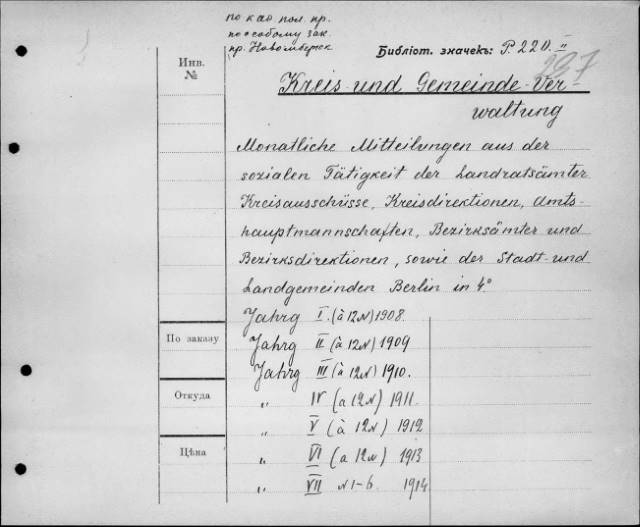 по каз пол. пр.
по особому зак.
пр. Нивомберск
Инв.
№
Библіот. значекъ: P. 220. II
237
Kreis und Gemeinde-Ver-
waltung
Monatliche Mitteilungen aus der
sozialen Tätigkeit der Landratsämter
Kreisausschüsse, Kreisdirektionen, Amts-
hauptmannschaften, Bezirksämter und
Bezirksdirektionen, sowie der Stadt- und
Landgemeinden Berlin in 4°
Jahrg I. (à 12 N) 1908.
По заказу
Jahrg II (à 12 N) 1909
Jahrg III (à 12 N) 1910.
Откуда
„ IV (a 12 N) 1911.
„ V (à 12 N) 1912
Цѣна
„ VI (a 12 N) 1913
„ VII N 1-6. 1914